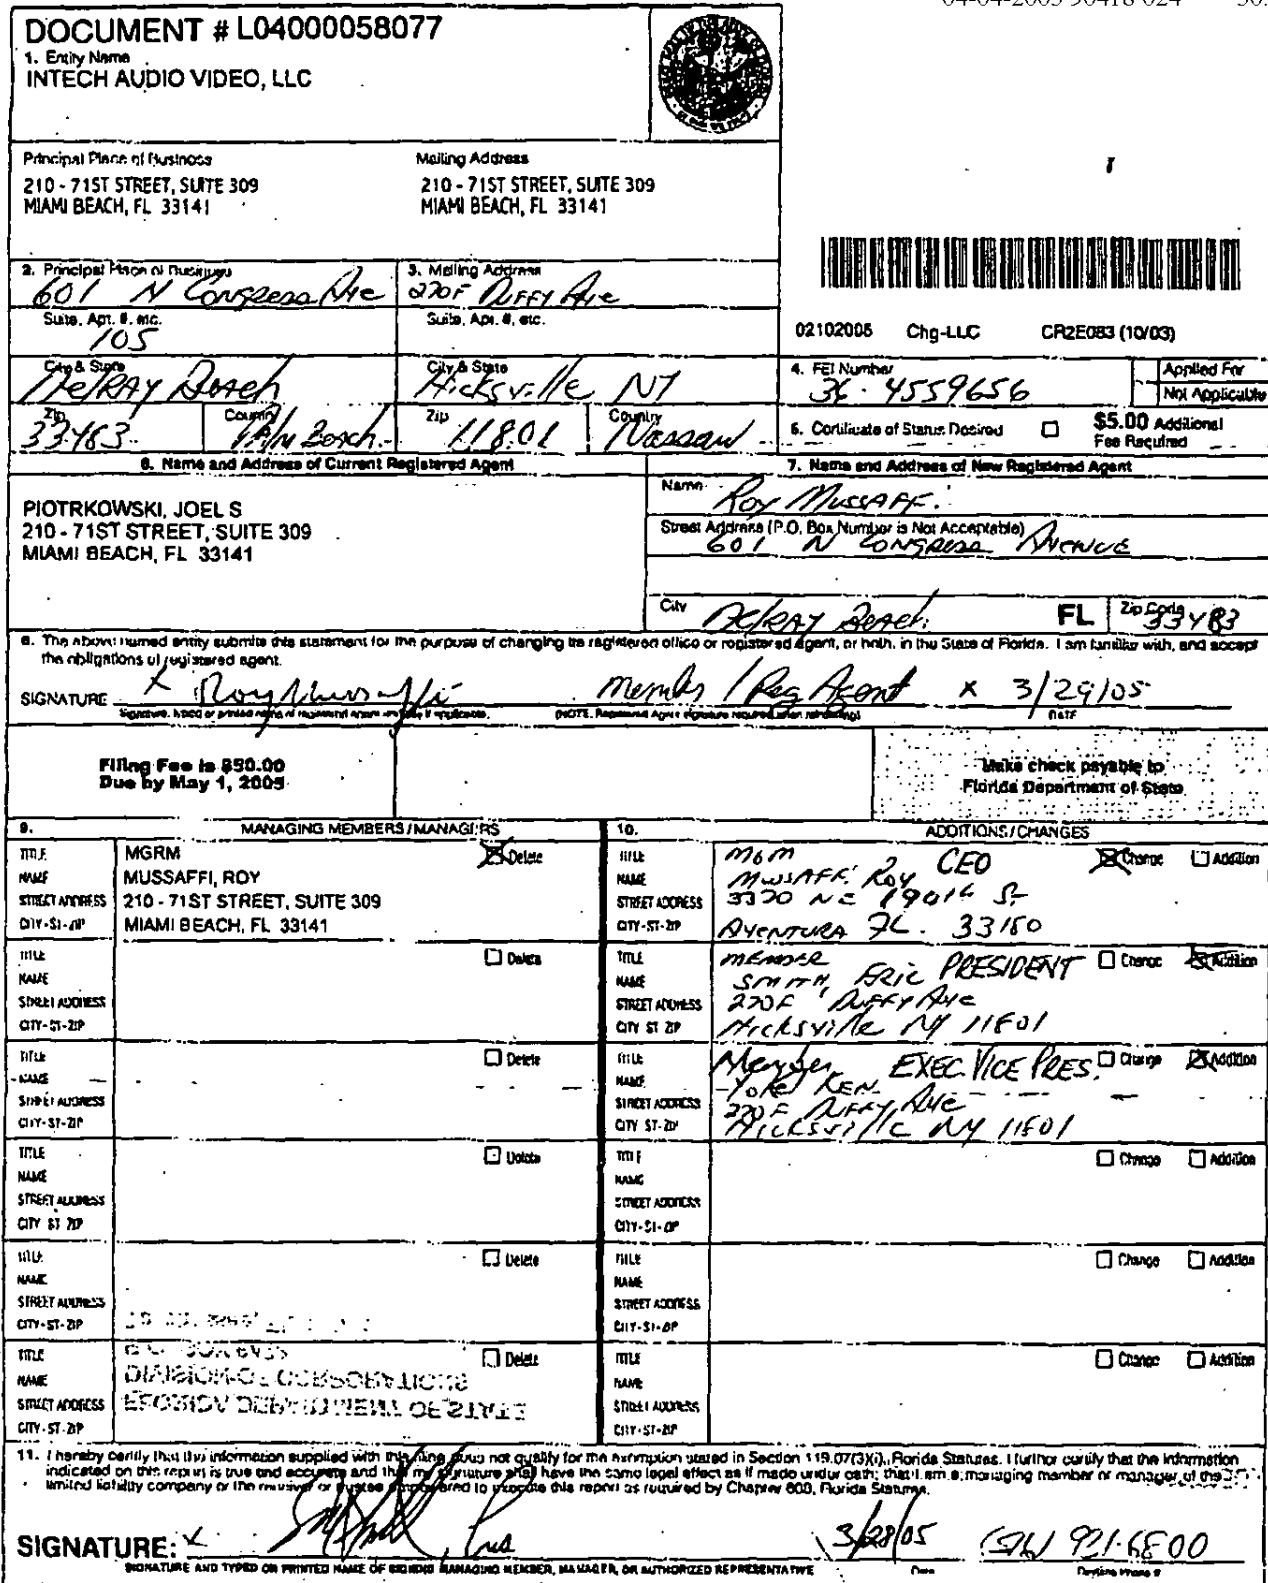 04-04-2005 90418 024
DOCUMENT # L04000058077
1. Entity Name
INTECH AUDIO VIDEO, LLC
Principal Place of Business
210 - 71ST STREET, SUITE 309
MIAMI BEACH, FL 33141
Mailing Address
210 - 71ST STREET, SUITE 309
MIAMI BEACH, FL 33141
2. Principal Place of Business
601 N Congress Ave
3. Mailing Address
270F Duffy Ave
Suite, Apt. #, etc.
105
Suite, Apt. #, etc.
City & State
Delray Beach
City & State
Hicksville NY
Zip
33483
Country
Palm Beach
Zip
11801
Country
Nassau
02102005 Chg-LLC CR2E083 (10/03)
4. FEI Number
36-4559656
Applied For
Not Applicable
5. Certificate of Status Desired
$5.00 Additional
Fee Required
6. Name and Address of Current Registered Agent
PIOTRKOWSKI, JOEL S
210 - 71ST STREET, SUITE 309
MIAMI BEACH, FL 33141
7. Name and Address of New Registered Agent
Name
Roy Mussaffi
Street Address (P.O. Box Number is Not Acceptable)
601 N Congress Avenue
City Delray Beach FL Zip Code 33483
8. The above named entity submits this statement for the purpose of changing its registered office or registered agent, or both, in the State of Florida. I am familiar with, and accept
the obligations of registered agent.
SIGNATURE x Roy Mussaffi Member / Reg Agent x 3/29/05
Signature, typed or printed name of registered agent and title if applicable. (NOTE: Registered Agent signature required when reinstating) DATE
Filing Fee is $50.00
Due by May 1, 2005
Make check payable to
Florida Department of State
9. MANAGING MEMBERS/MANAGERS
TITLE MGRM Delete
NAME MUSSAFFI, ROY
STREET ADDRESS 210 - 71ST STREET, SUITE 309
CITY-ST-ZIP MIAMI BEACH, FL 33141
TITLE Delete
NAME
STREET ADDRESS
CITY-ST-ZIP
TITLE Delete
NAME
STREET ADDRESS
CITY-ST-ZIP
TITLE Delete
NAME
STREET ADDRESS
CITY-ST-ZIP
TITLE Delete
NAME
STREET ADDRESS
CITY-ST-ZIP
TITLE Delete
NAME
STREET ADDRESS
CITY-ST-ZIP
DIVISION OF CORPORATIONS
FLORIDA DEPARTMENT OF STATE
10. ADDITIONS/CHANGES
TITLE MGM CEO Change Addition
NAME Mussaffi Roy
STREET ADDRESS 3370 NE 190th St
CITY-ST-ZIP Aventura FL. 33180
TITLE member PRESIDENT Change Addition
NAME Smith, Eric
STREET ADDRESS 270F Duffy Ave
CITY-ST-ZIP Hicksville NY 11801
TITLE Member EXEC. VICE PRES. Change Addition
NAME Yoke, Ken
STREET ADDRESS 270F Duffy Ave
CITY-ST-ZIP Hicksville NY 11801
TITLE Change Addition
NAME
STREET ADDRESS
CITY-ST-ZIP
TITLE Change Addition
NAME
STREET ADDRESS
CITY-ST-ZIP
TITLE Change Addition
NAME
STREET ADDRESS
CITY-ST-ZIP
11. I hereby certify that the information supplied with this filing does not qualify for the exemption stated in Section 119.07(3)(i), Florida Statutes. I further certify that the information
indicated on this report is true and accurate and that my signature shall have the same legal effect as if made under oath; that I am a managing member or manager of the
limited liability company or the receiver or trustee empowered to execute this report as required by Chapter 608, Florida Statutes.
SIGNATURE: x Pres 3/28/05 (516) 921-6800
SIGNATURE AND TYPED OR PRINTED NAME OF SIGNING MANAGING MEMBER, MANAGER, OR AUTHORIZED REPRESENTATIVE Date Daytime Phone #